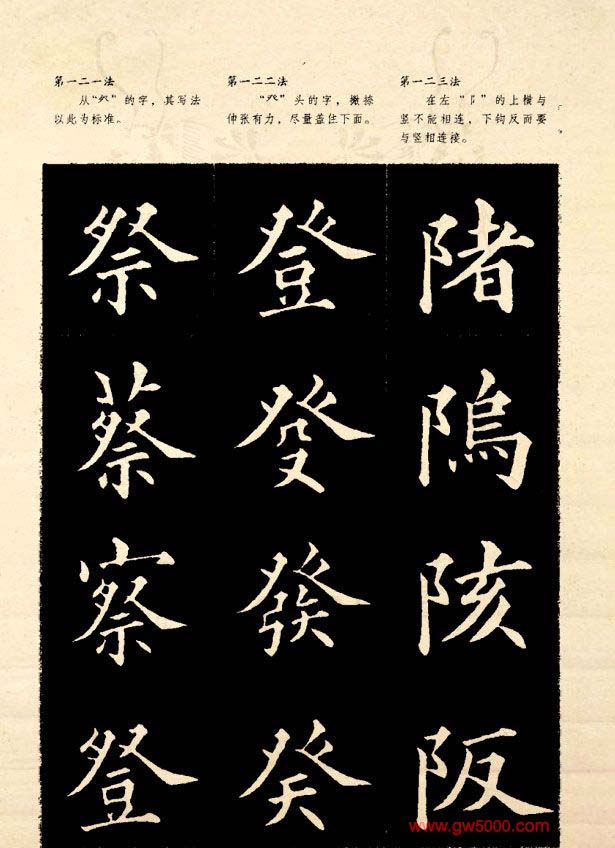 第一二一法
从“”的字，其写法
以此为标准。
第一二二法
“癶”头的字，撇捺
仲张有力，尽量盖住下面。
第一二三法
在左“阝”的上横与
竖不能相连，下钩反而要
与竖相连接。
祭 登 陼
蔡 癹 隝
察 發 陔
豋 癸 阪
www.gw5000.com